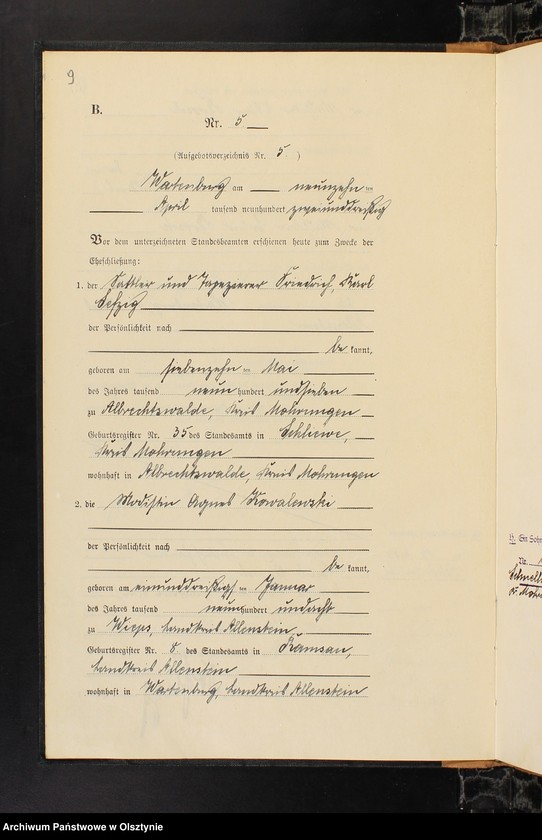 9
B.
Nr. 5
(Aufgebotsverzeichnis Nr. 5.)
Wartenburg am neunzehn ten
April tausend neunhundert zweiunddreißig
Vor dem unterzeichneten Standesbeamten erschienen heute zum Zwecke der
Eheschließung:
1. der Sattler und Tapezierer Friedrich, Karl
der Persönlichkeit nach
be kannt,
geboren am siebenzehn ten Mai
des Jahres tausend neun hundert undsieben
zu Albrechtswalde, Kreis Mohrungen
Geburtsregister Nr. 35 des Standesamts in Schliewe,
Kreis Mohrungen
wohnhaft in Albrechtswalde, Kreis Mohrungen
2. die Modistin Agnes Kowalewski
der Persönlichkeit nach
be kannt,
geboren am einunddreißigst ten Januar
des Jahres tausend neun hundert undacht
zu Wieps, Landkreis Allenstein,
Geburtsregister Nr. 8. des Standesamts in Ramsau,
Landkreis Allenstein
wohnhaft in Wartenburg, Landkreis Allenstein
H. Ein Sohn
Nr.
Archiwum Państwowe w Olsztynie